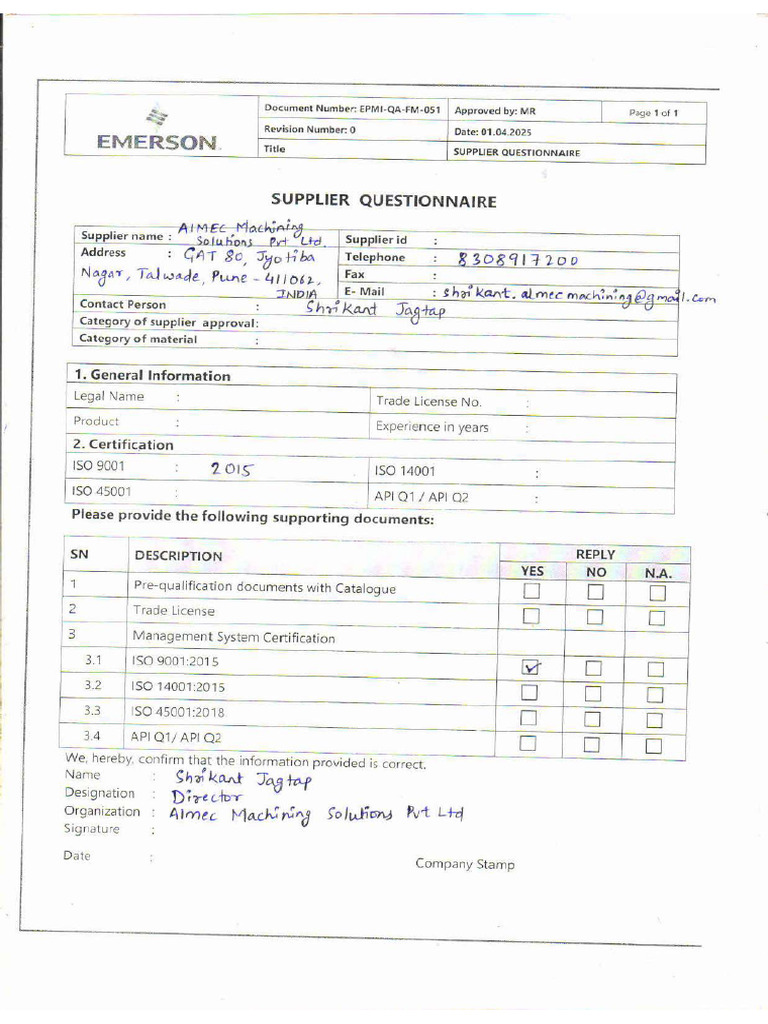 EMERSON
Document Number: EPMI-QA-FM-051 Approved by: MR Page 1 of 1
Revision Number: 0 Date: 01.04.2025
Title SUPPLIER QUESTIONNAIRE
SUPPLIER QUESTIONNAIRE
Supplier name : Almec Machining
Solutions Pvt Ltd. Supplier id :
Address : GAT 80, Jyotiba Telephone : 8308917200
Nagar, Talwade, Pune - 411062, Fax :
INDIA E- Mail : shrikant.almecmachining@gmail.com
Contact Person : Shrikant Jagtap
Category of supplier approval:
Category of material :
1. General Information
Legal Name : Trade License No. :
Product : Experience in years :
2. Certification
ISO 9001 : 2015 ISO 14001 :
ISO 45001 : API Q1 / API Q2 :
Please provide the following supporting documents:
SN DESCRIPTION REPLY
YES NO N.A.
1 Pre-qualification documents with Catalogue ☐ ☐ ☐
2 Trade License ☐ ☐ ☐
3 Management System Certification
3.1 ISO 9001:2015 ☑ ☐ ☐
3.2 ISO 14001:2015 ☐ ☐ ☐
3.3 ISO 45001:2018 ☐ ☐ ☐
3.4 API Q1/ API Q2 ☐ ☐ ☐
We, hereby, confirm that the information provided is correct.
Name : Shrikant Jagtap
Designation : Director
Organization : Almec Machining Solutions Pvt Ltd
Signature :
Date : Company Stamp